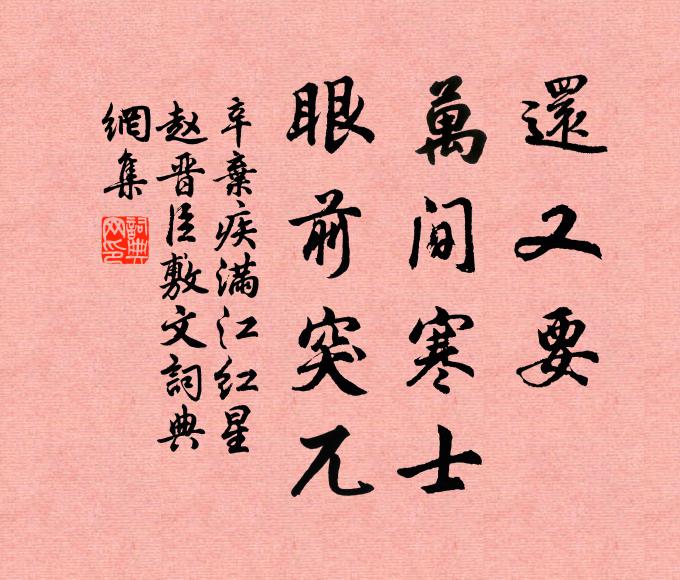 還又要
萬間寒士
眼前突兀
辛棄疾满江红星
赵晋臣敷文詞典
網集
詞典
网印